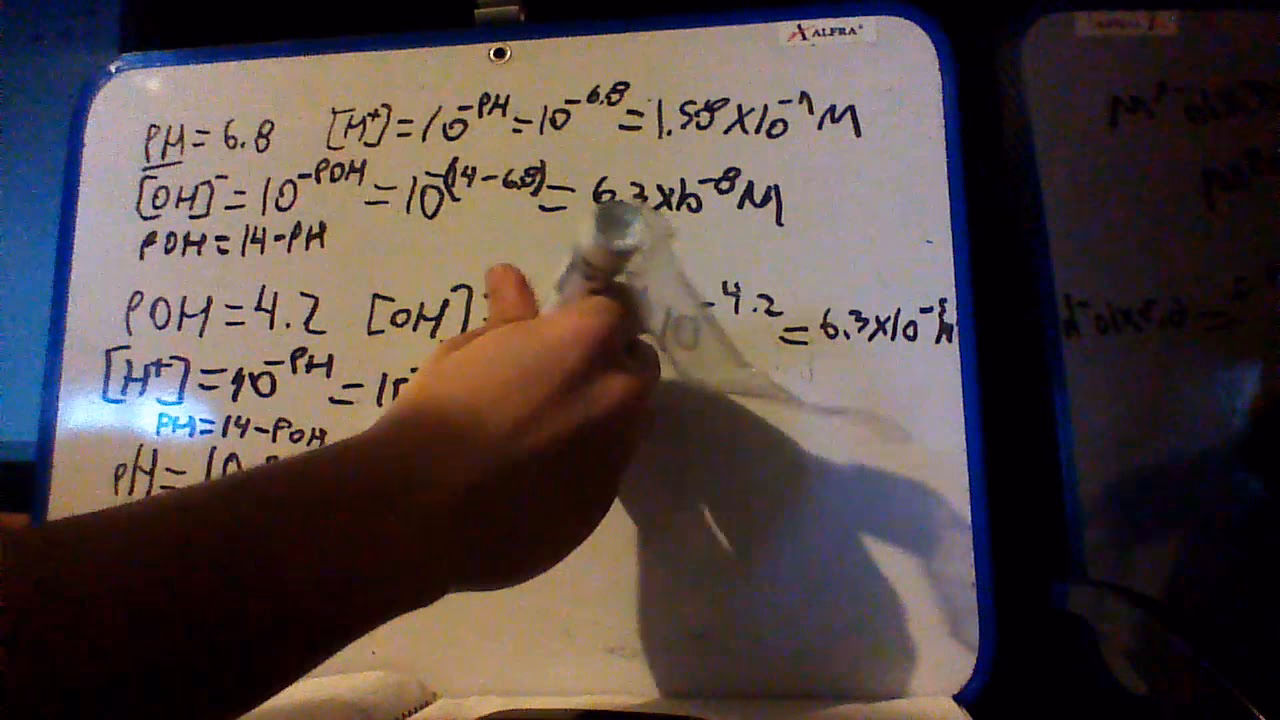 ALFRA
PH=6.8 [H+]=10^-PH=10^-6.8=1.58x10^-7M
[OH]^-=10^-POH=10^-(14-6.8)=6.3x10^-8M
POH=14-PH
POH=4.2 [OH]= 10^-4.2=6.3x10^-5M
[H+]=10^-PH=10
PH=14-POH
pH=10.